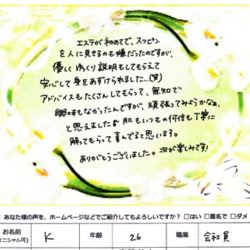 エステが初めてで、スッピン
を人に見せるのも嫌だったのですが、
優しくゆっくり説明もしてもらえて
安心して身をあずけられました…(笑)
アドバイスもたくさんしてもらって、無知で
興味もなかったんですが、頑張ってみようかなぁ、
と思えました♪ 肌もいつも何時も丁寧に
解してもらって喜んでると思います。
ありがとうございました。次が楽しみです!
あなた様の声を、ホームページなどでご紹介してもよろしいですか? □はい □匿名で □ダメ
お名前 K 年齢 26 職業 会社員
イニシャル可)